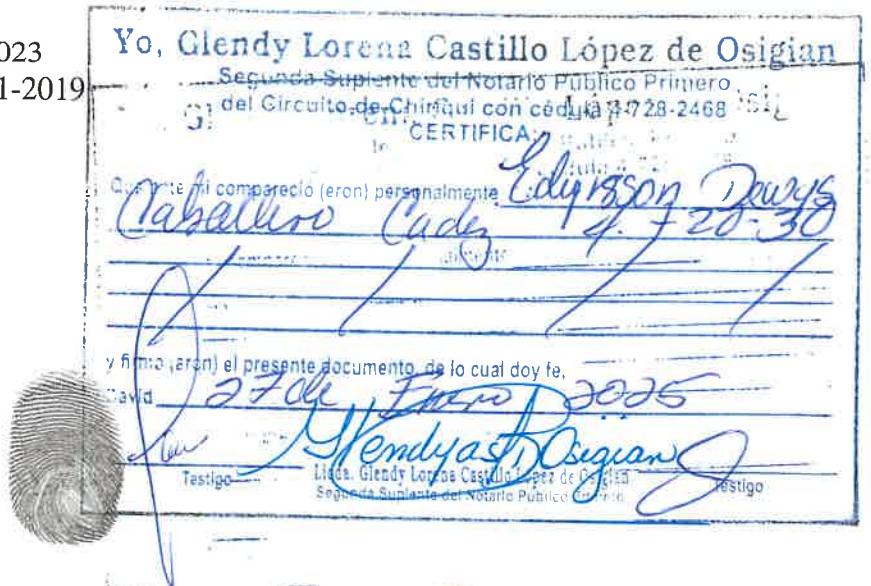 023
1-2019
Yo, Glendy Lorena Castillo López de Osigian
Segunda Suplente del Notario Público Primero
del Circuito de Chiriquí con cédula 4-728-2468
CERTIFICA
Que ante mi compareció (eron) personalmente Edynsson Dewys
Caballero Cadez 4-720-30
y firmo (aron) el presente documento, de lo cual doy fe,
David 27 de Enero 2025
Glendy Osigian
Testigo
Licda. Glendy Lorena Castillo López de Osigian
Testigo
Segunda Suplente del Notario Público Primero